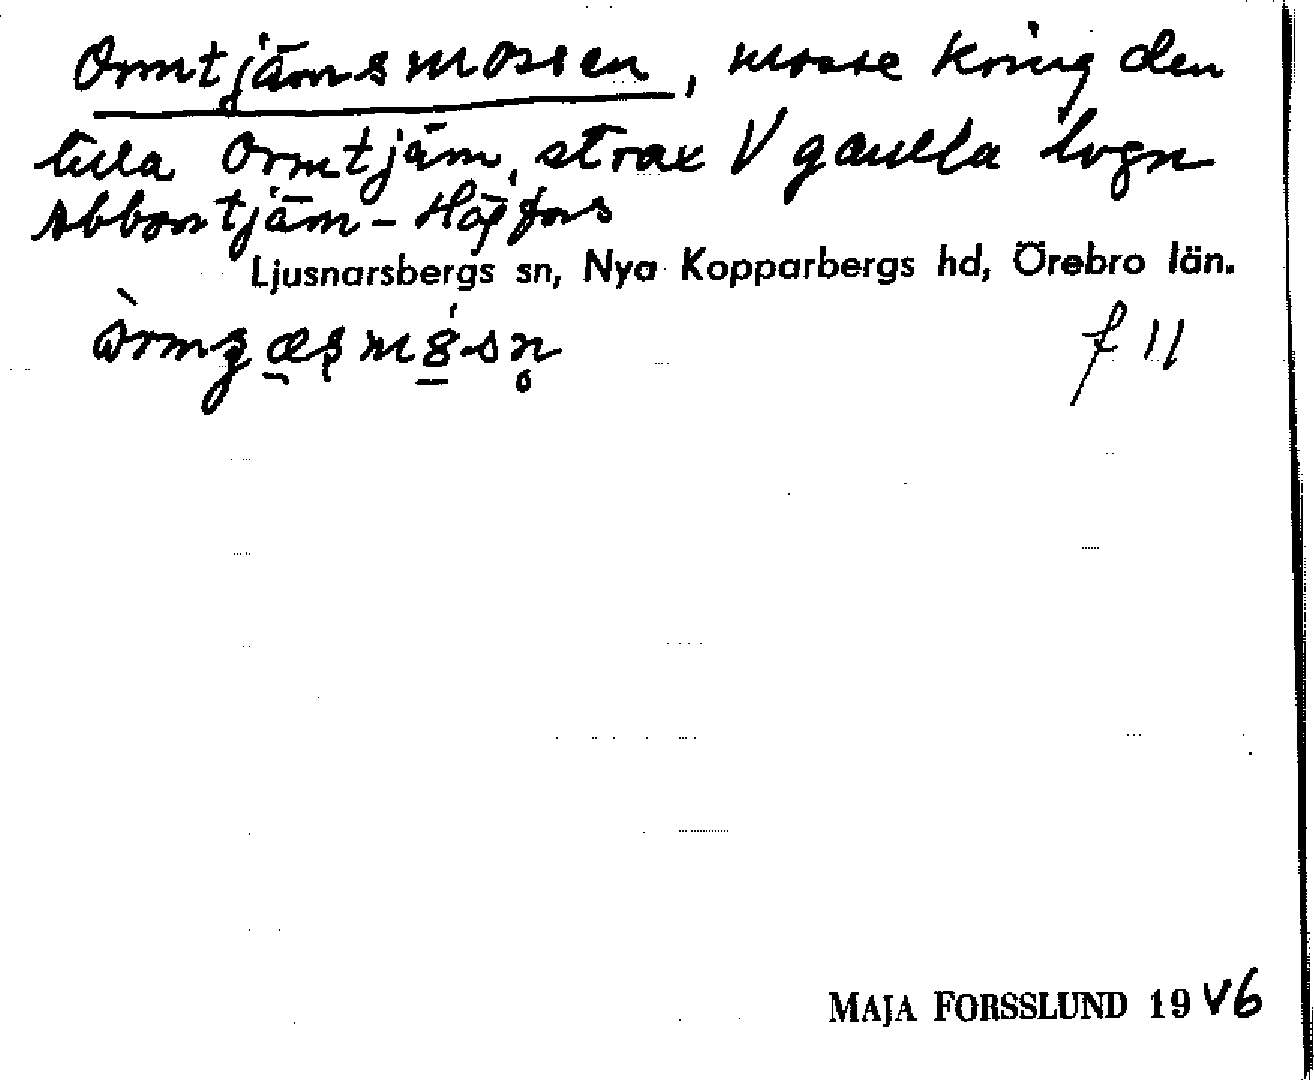 Ormtjärnsmossen, mosse kring den
lilla Ormtjärn, strax V gamla lvgn
Abborrtjärn - Högfors
Ljusnarsbergs sn, Nya Kopparbergs hd, Örebro län.
f 11
MAJA FORSSLUND 19 46